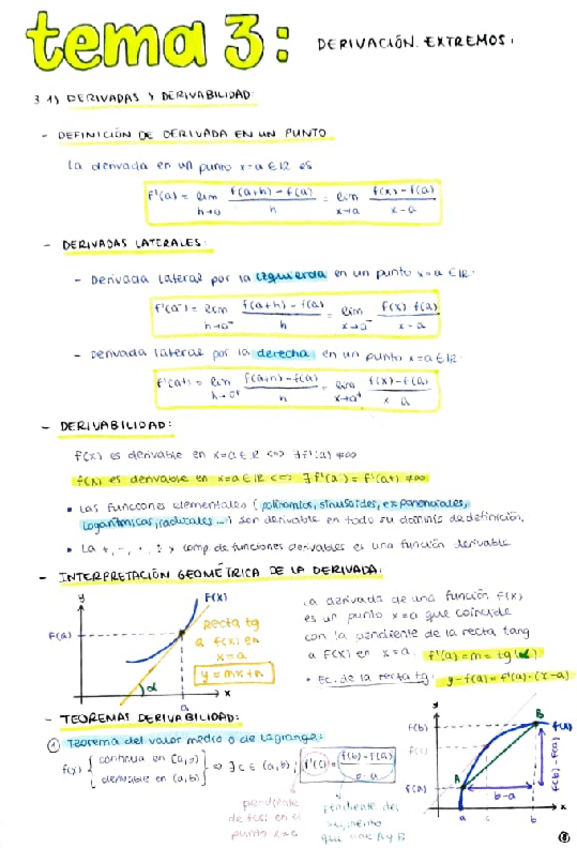 tema 3: DERIVACIÓN. EXTREMOS.
3.1) DERIVADAS Y DERIVABILIDAD:
- DEFINICIÓN DE DERIVADA EN UN PUNTO
La derivada en un punto x=a ∈ IR es
f'(a) = lim h→0 f(a+h) - f(a) / h = lim x→a f(x) - f(a) / x - a
- DERIVADAS LATERALES:
- Derivada lateral por la izquierda en un punto x=a ∈ IR.
f'(a⁻) = lim h→0⁻ f(a+h) - f(a) / h = lim x→a⁻ f(x) - f(a) / x - a
- Derivada lateral por la derecha en un punto x=a ∈ IR.
f'(a⁺) = lim h→0⁺ f(a+h) - f(a) / h = lim x→a⁺ f(x) - f(a) / x - a
- DERIVABILIDAD:
f(x) es derivable en x=a ∈ IR <=> ∃ f'(a) ≠ ∞
f(x) es derivable en x=a ∈ IR <=> ∃ f'(a⁻) = f'(a⁺) ≠ ∞
• Las funciones elementales (polinomios, sinusoides, exponenciales,
logarítmicas, radicales...) son derivable en todo su dominio de definición.
• La +, -, ·, : y comp. de funciones derivables es una función derivable
- INTERPRETACIÓN GEOMÉTRICA DE LA DERIVADA:
y
f(x)
f(a)
Recta tg
a f(x) en
x=a
y=mx+n
α
a
x
La derivada de una función f(x)
es un punto x=a que coincide
con la pendiente de la recta tang
a f(x) en x=a. f'(a)=m=tg(α)
• Ec. de la recta tg: y-f(a)=f'(a)·(x-a)
- TEOREMAS DERIVABILIDAD:
① Teorema del valor medio o de Lagrange:
f(x) { continua en (a,b)
derivable en (a,b) } => ∃ c ∈ (a,b) ; f'(c) = f(b)-f(a) / b-a
pendiente
de f(x) en el
punto x=c
pendiente del
segmento
que une A y B
y
f(b)
f(c)
f(a)
A
B
f(x)
b-a
f(b)-f(a)
a c b
x